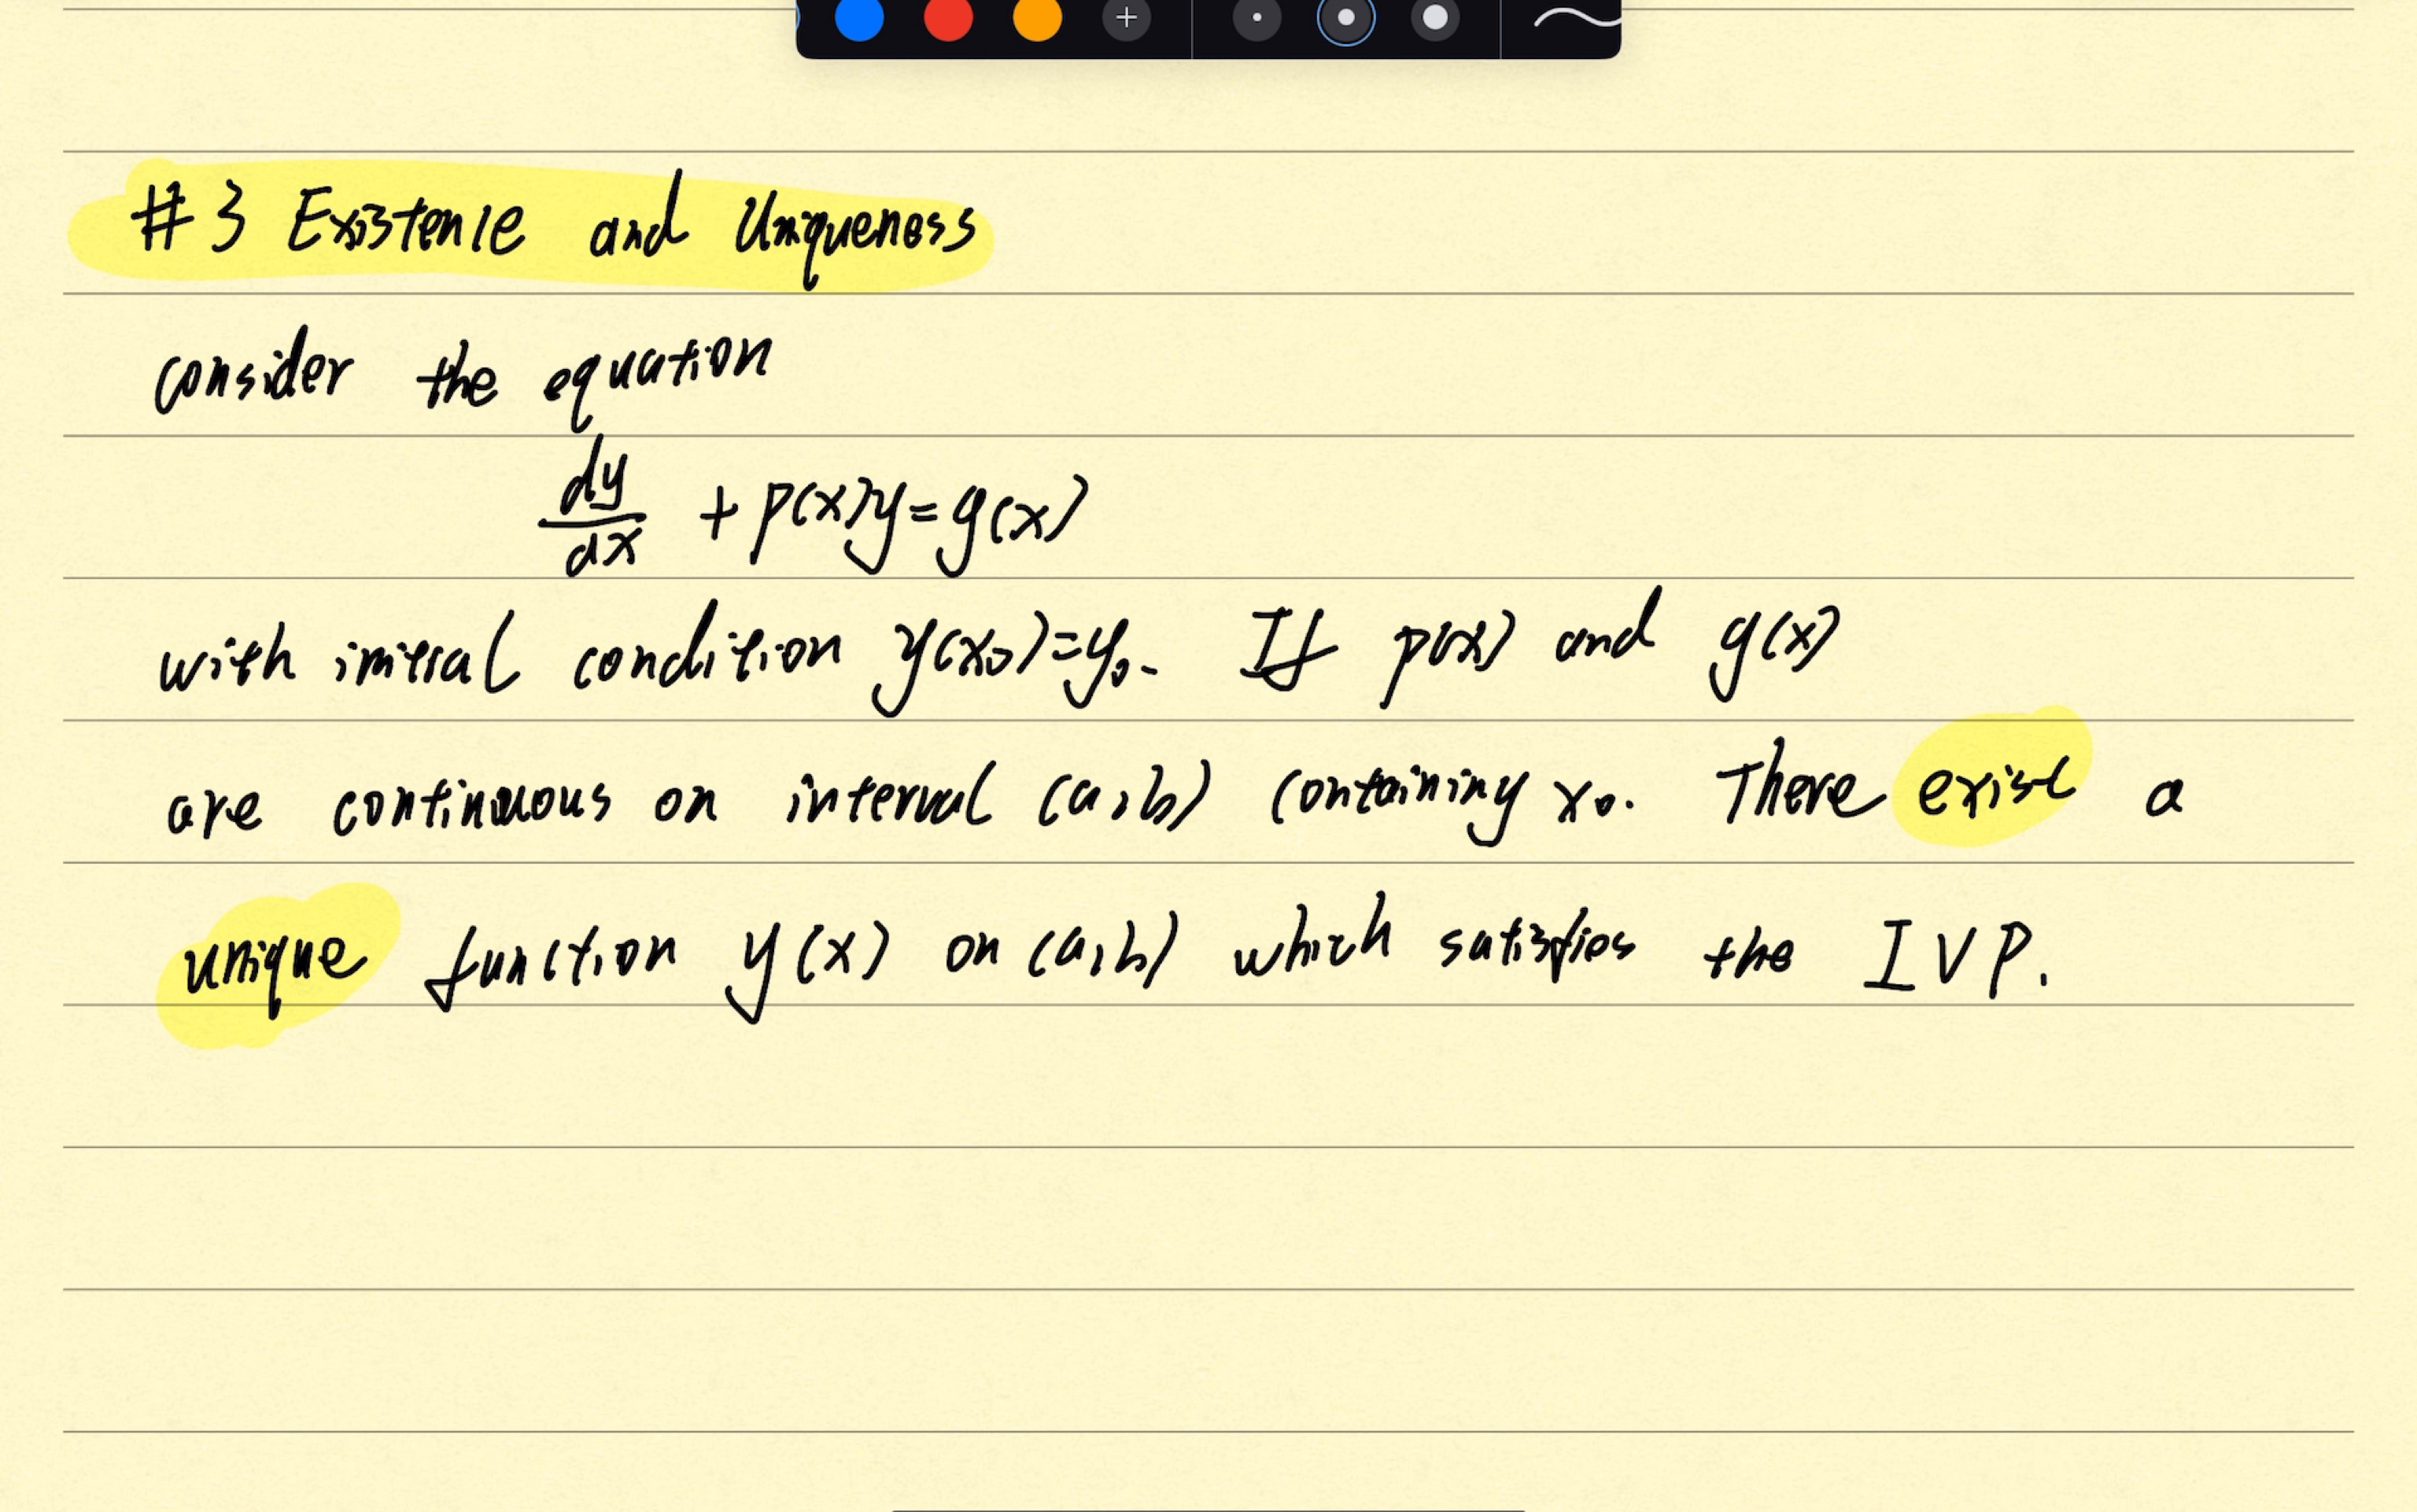 #3 Existence and Uniqueness
consider the equation
dy/dx + p(x)y=g(x)
with initial condition y(x₀)=y₀. If p(x) and g(x)
are continuous on interval (a,b) containing x₀. There exist a
unique function y(x) on (a,b) which satisfies the IVP.